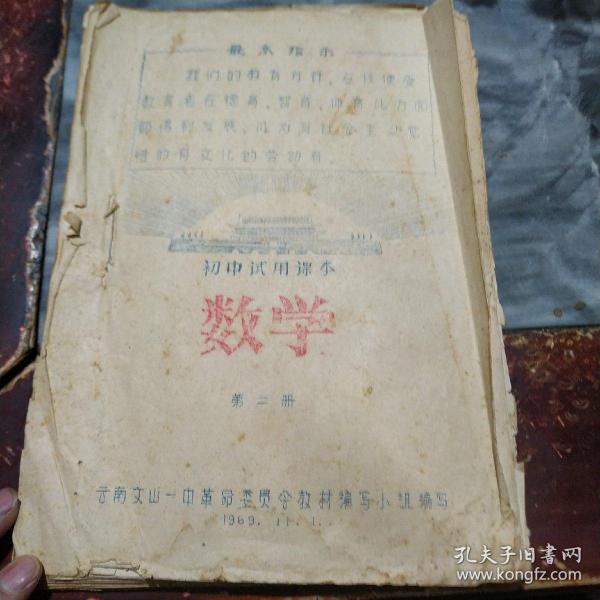 最高指示
我们的教育方针，应该使受
教育者在德育、智育、体育几方面
都得到发展，成为有社会主义觉
悟的有文化的劳动者。
初中试用课本
数学
第二册
云南文山一中革命委员会教材编写小组编写
1969.11.1.
孔夫子旧书网
www.kongfz.com